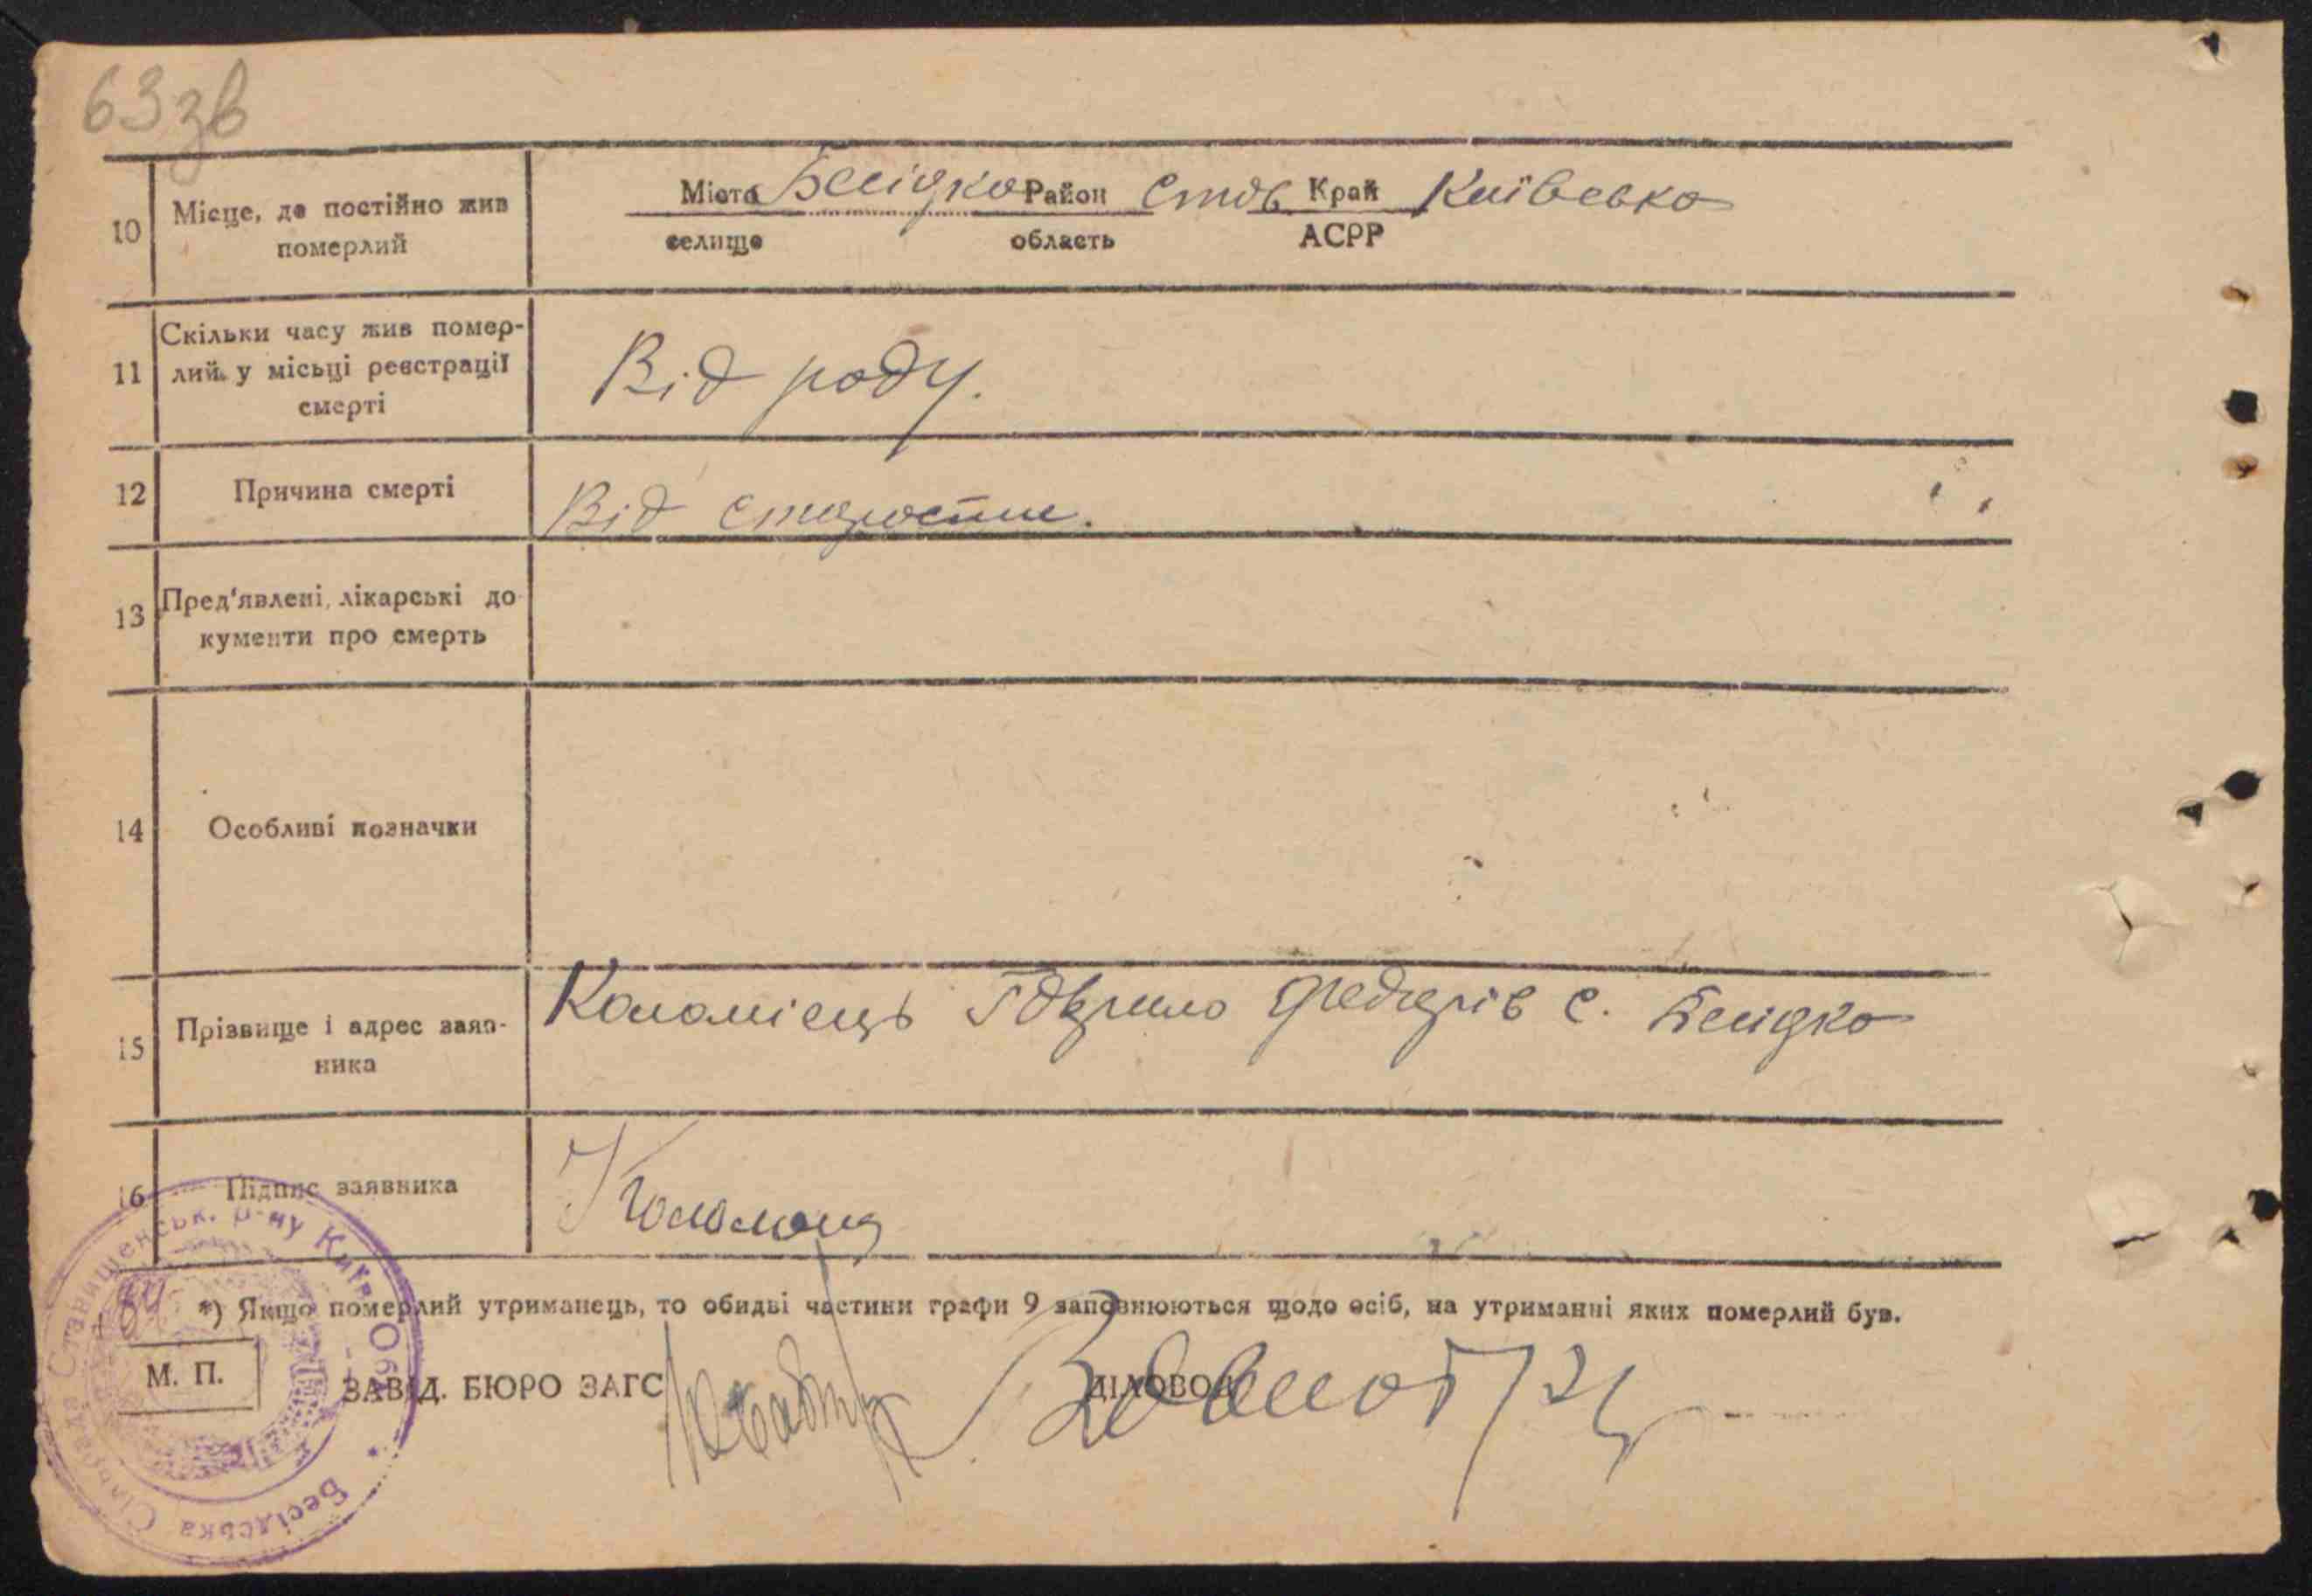 63 зв
10 Місце, де постійно жив
померлий
Місто Бесідка Район Став Край Київська
селище область АСРР
11 Скільки часу жив помер-
лий у місці реєстрації
смерті
Від роду.
12 Причина смерті Від старости.
13 Пред'явлені лікарські до
кументи про смерть
14 Особливі позначки
15 Прізвище і адрес заяв-
ника
Коломієць Гаврило Федорів с. Бесідка
16 Підпис заявника
Коломієць
*) Якщо померлий утриманець, то обидві частини графи 9 заповнюються щодо осіб, на утриманні яких померлий був.
М. П. ЗАВІД. БЮРО ЗАГС ДІЛОВОД
Бесідська Сільрада Ставищенськ. р-ну Київ. Обл.